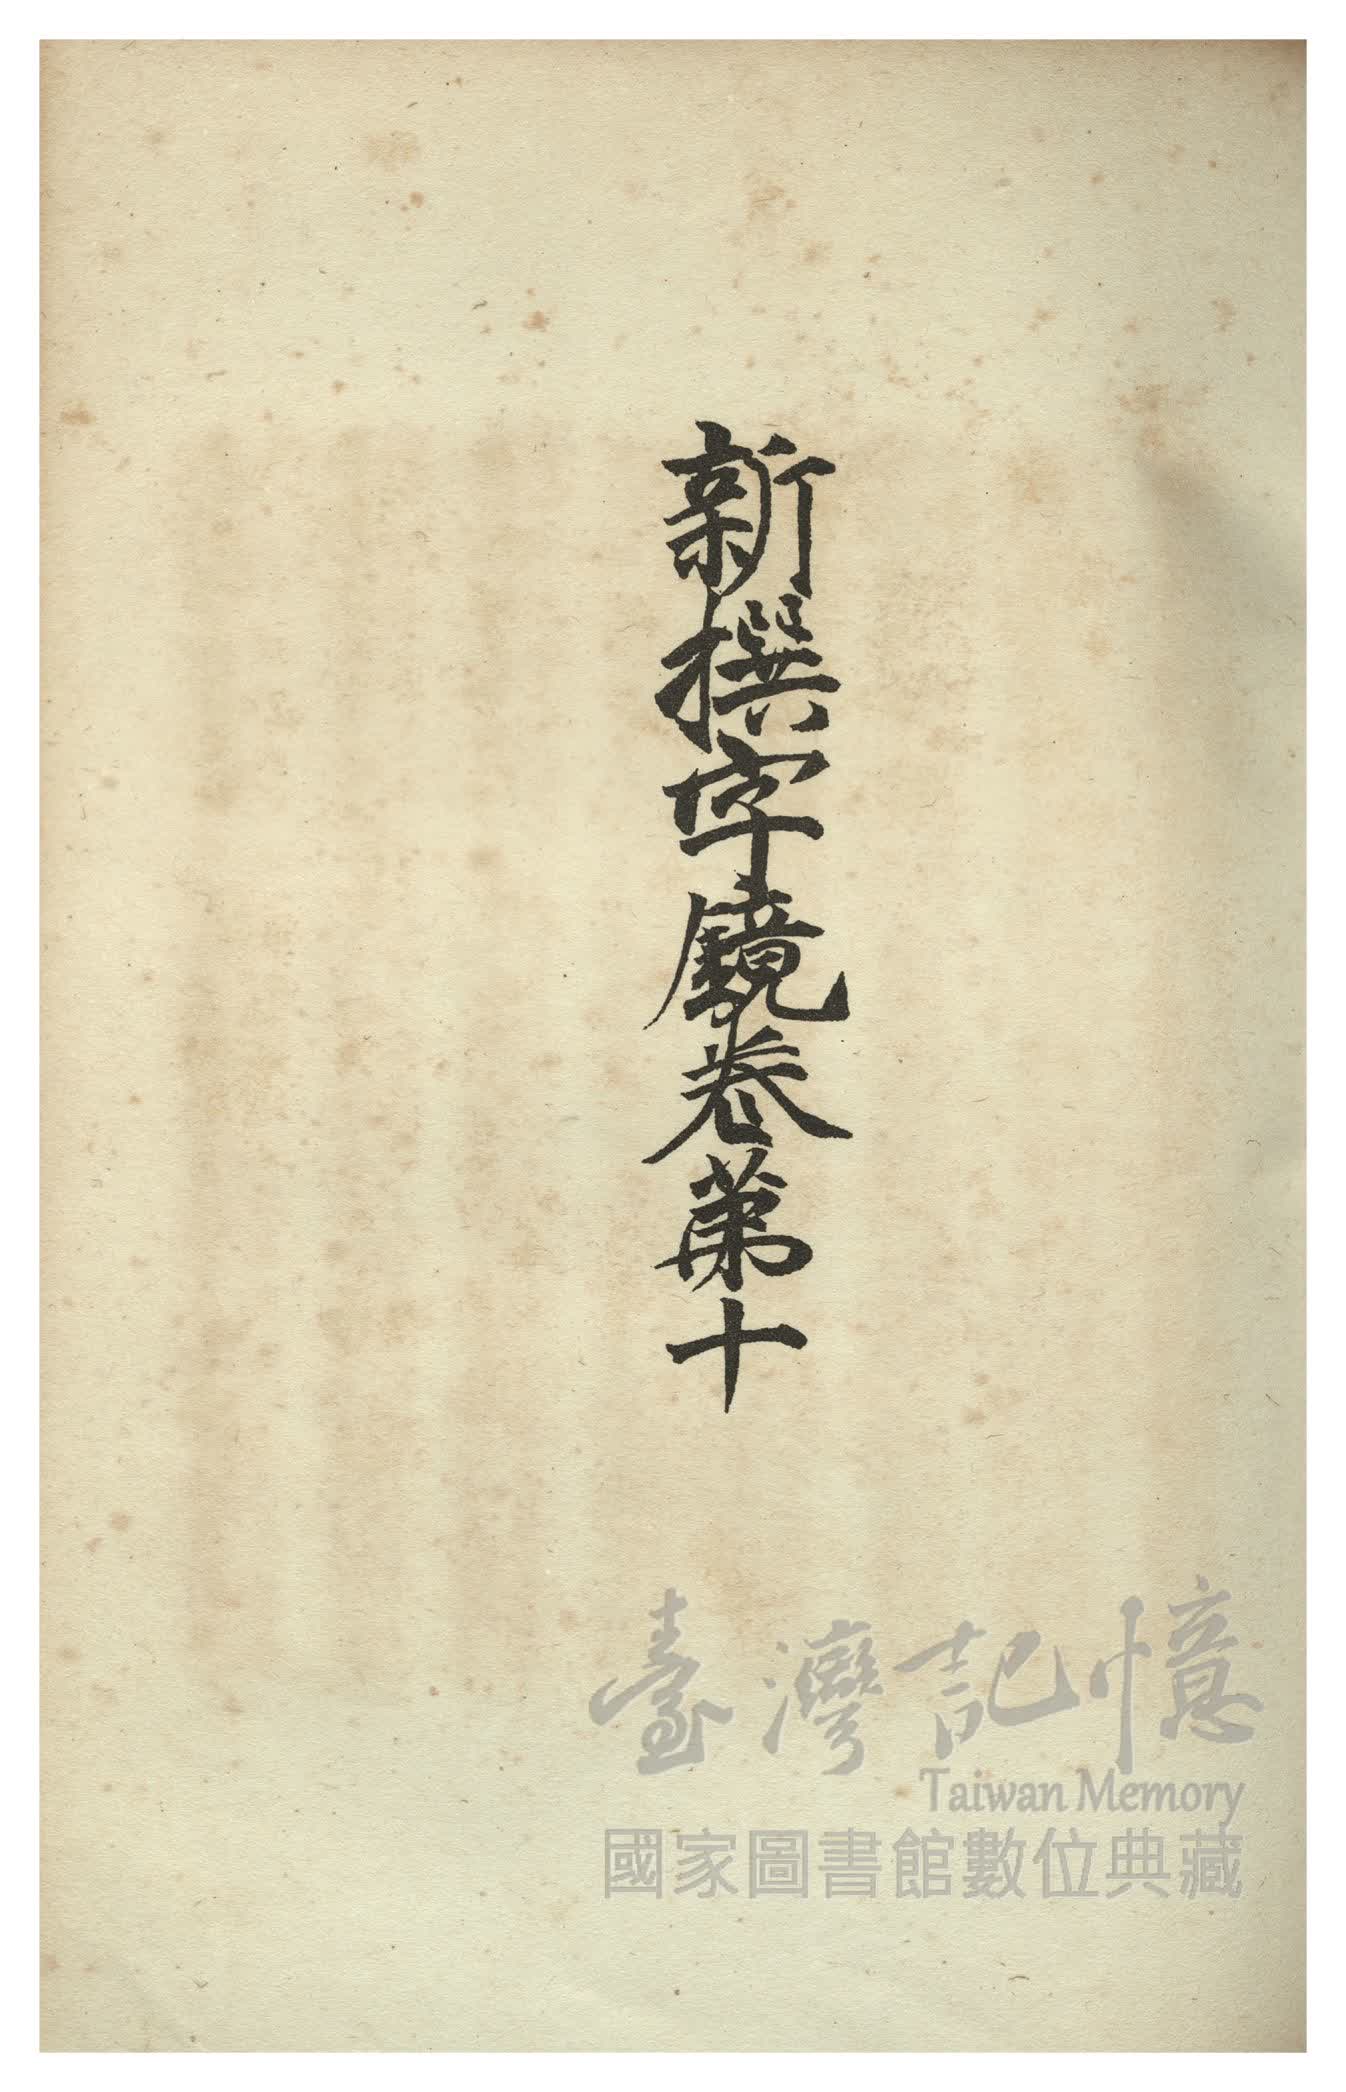 新撰字鏡卷第十
臺灣記憶
Taiwan Memory
國家圖書館數位典藏